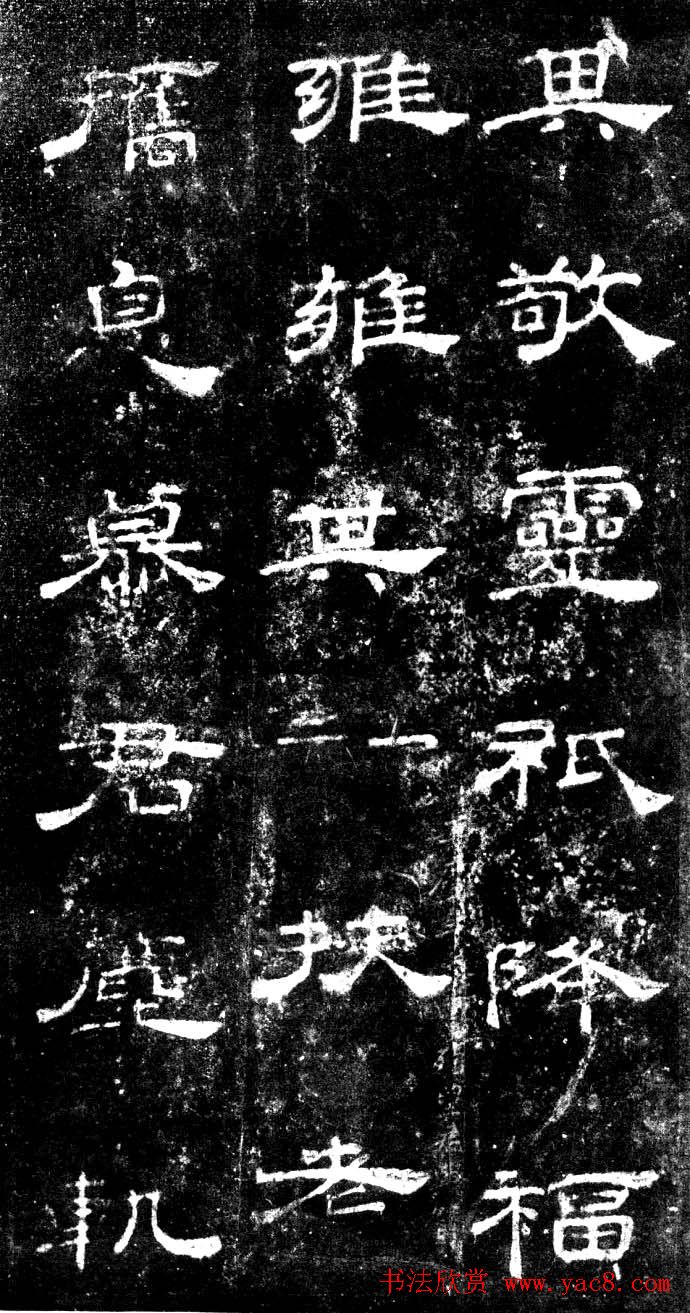 其敬靈祇降福
雍雍其扶老
攜息慕君塵軌
书法欣赏 www.yac8.com